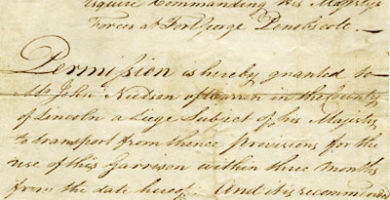 Esquire Commanding his Majestys
Forces at Fort George Penobscote.
Permission is hereby granted to
Mr John Nudson of Warren in the County
of Lincoln a Liege Subject of his Majesty
to transport from thence provisions for the
use of this Garrison within three months
from the date hereof. And it is recommended